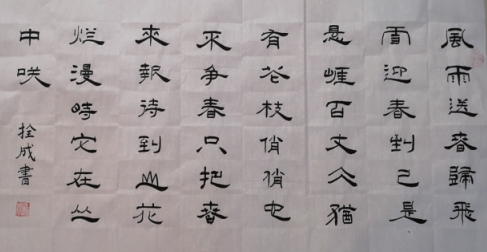 風雨送春歸飛
雪迎春到已是
悬崖百丈仌猶
有花枝俏俏也
不争春只把春
來報待到山花
烂漫時它在丛
中咲
拴成書